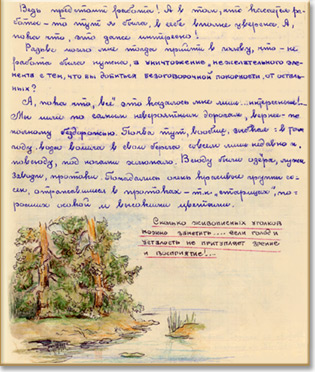 Ведь предстоит работа! А в том, что касается ра-
боты – то тут я была, в себе вполне уверена. А,
пока что, это даже интересно!
Разве могло мне тогда прийти в голову, что – не
работа была нужна, а уничтожение, нежелательного эле-
мента с тем, что вы добиться безоговорочной покорности, от осталь-
ных?
А, пока что, "всё" это казалось мне лишь... интересным!..
Мы шли по самым невероятным дорогам, вернее – по
полному бездорожью. Почва тут, вообще, зыбкая: в этом
году вода вошла в свои берега совсем лишь недавно и,
повсюду, под ногами хлюпало. Всюду были озёра, лужи,
заводи, протоки. Попадались очень красивые группы со-
сен, отражавшиеся в протоках – т.н. "старицах", по-
росших осокой и высокими цветами.
Сколько живописных уголков
можно заметить.... если голод и
усталость не притупляет зрение
и восприятие!...